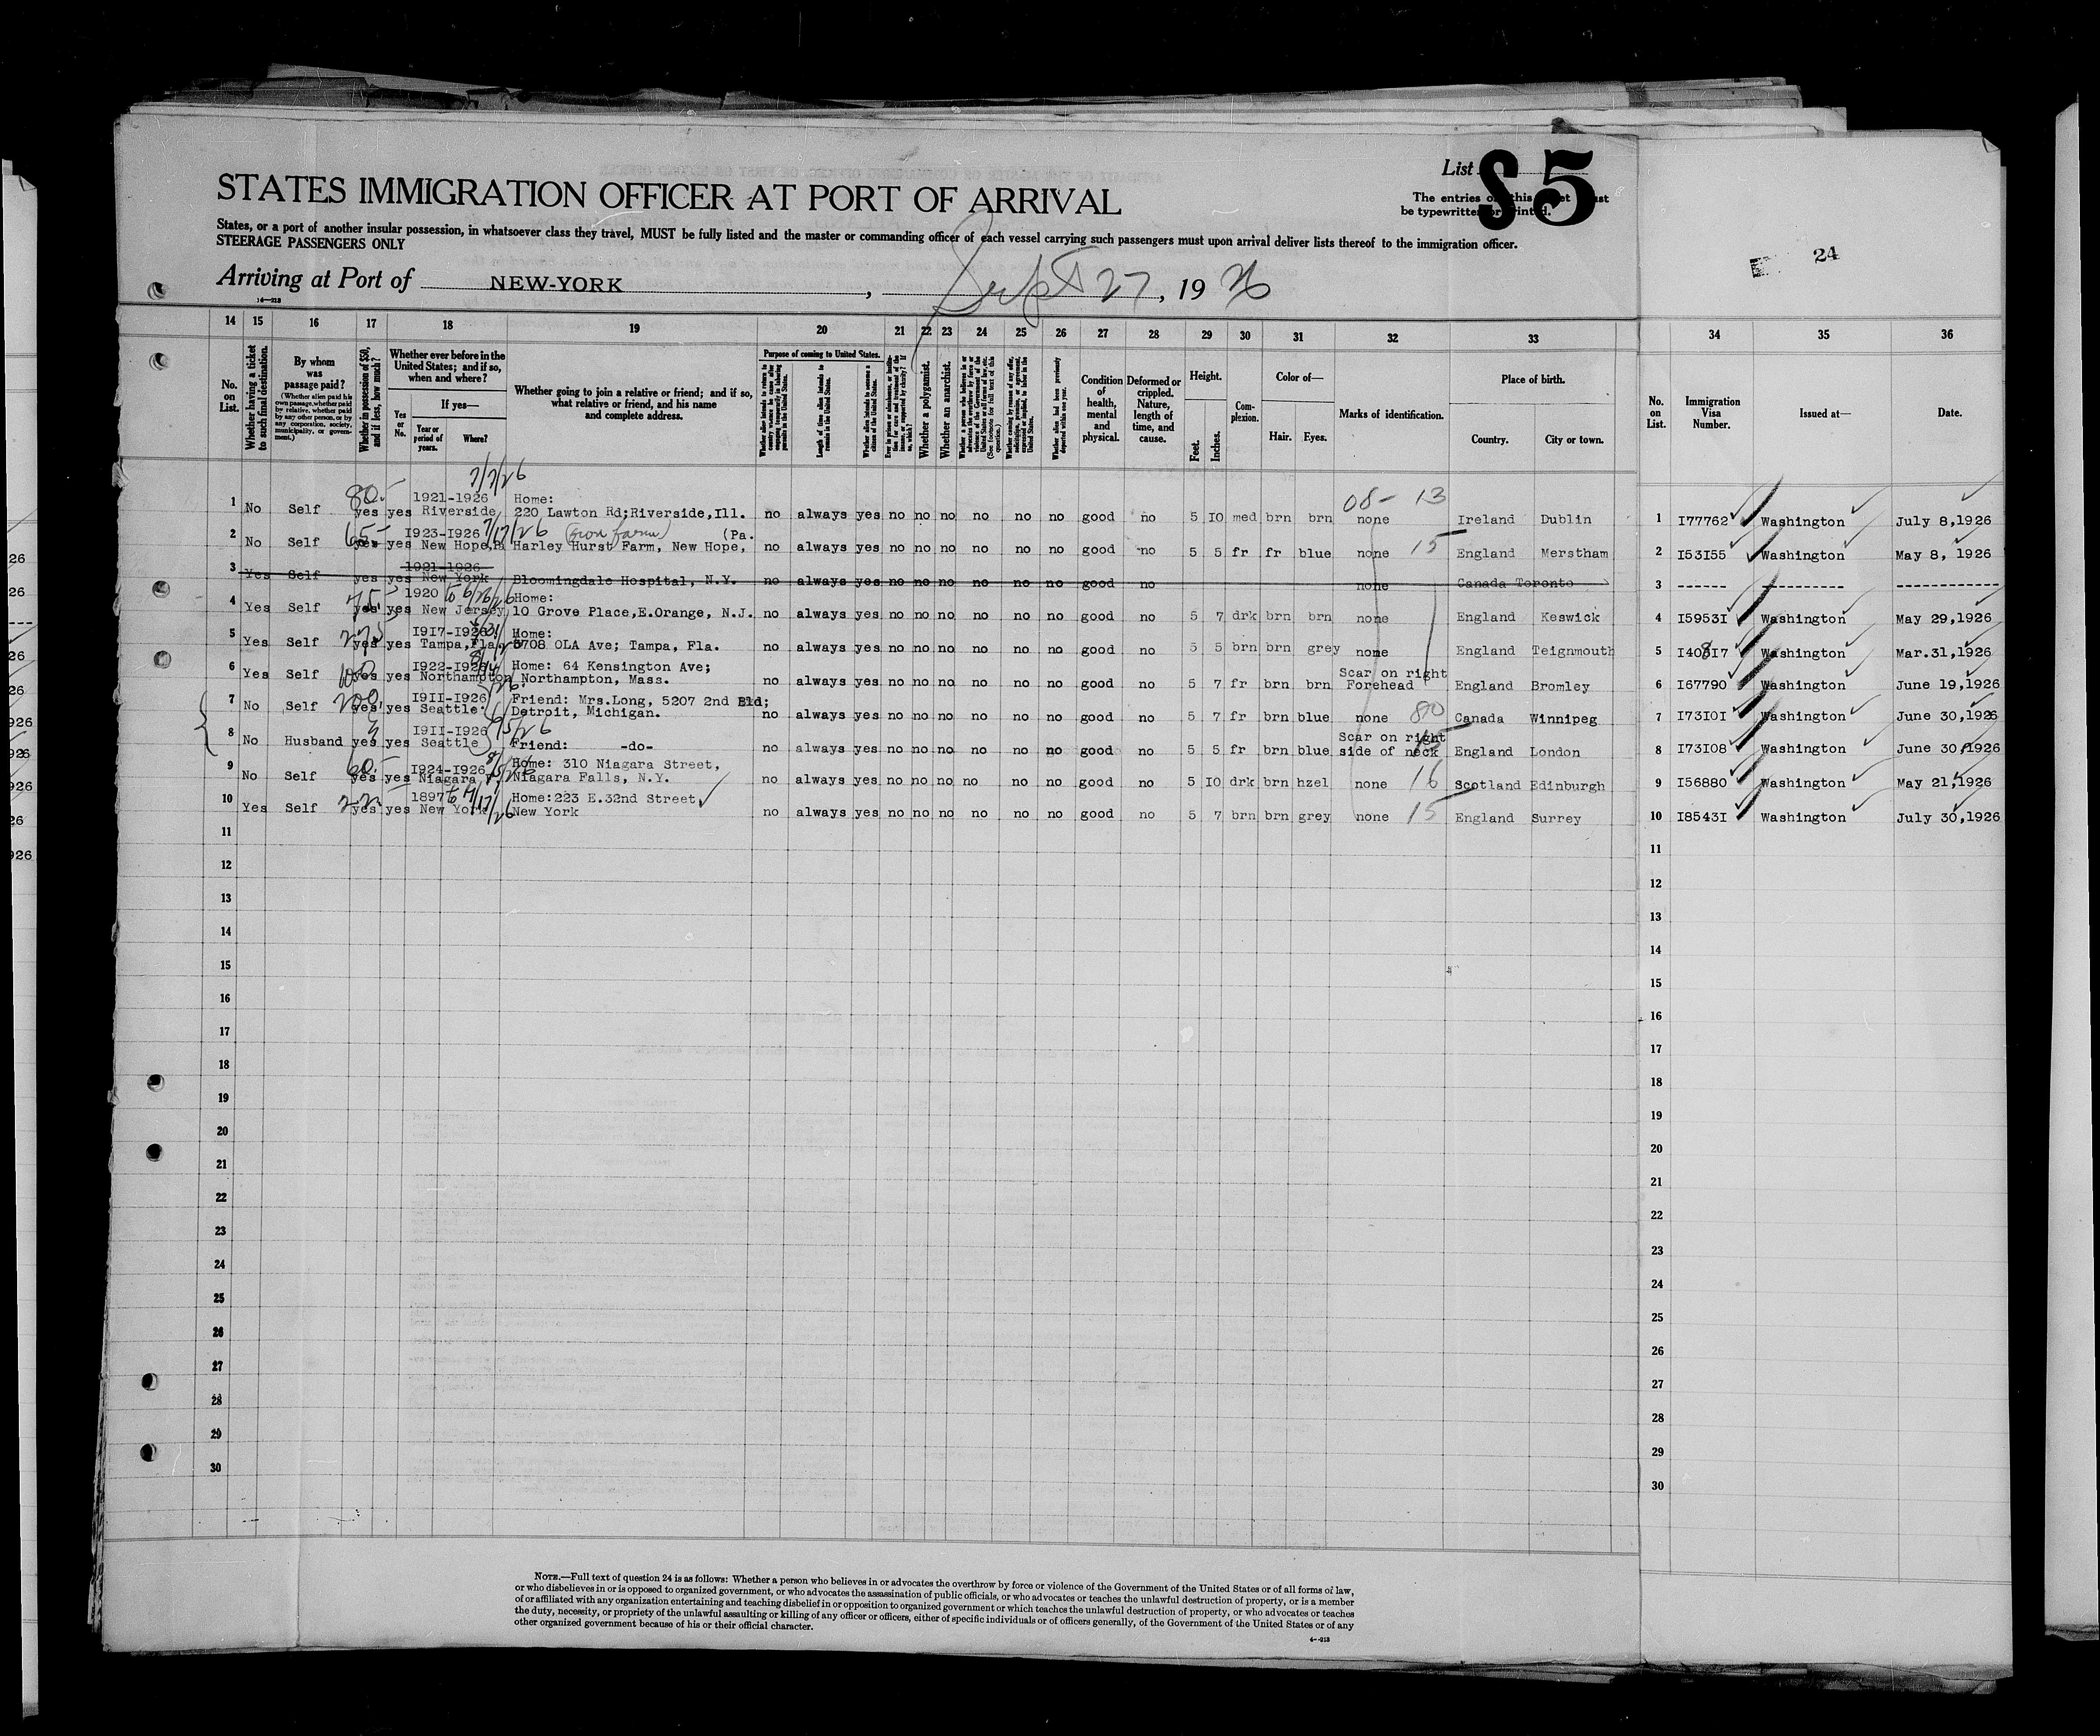 List S5
STATES IMMIGRATION OFFICER AT PORT OF ARRIVAL
The entries on this sheet must
be typewritten or printed.
States, or a port of another insular possession, in whatsoever class they travel, MUST be fully listed and the master or commanding officer of each vessel carrying such passengers must upon arrival deliver lists thereof to the immigration officer.
STEERAGE PASSENGERS ONLY
24
Arriving at Port of NEW-YORK, Sept 27, 1926
14 15 16 17 18 19 20 21 22 23 24 25 26 27 28 29 30 31 32 33 34 35 36
No. on List.
Whether having a ticket to such final destination.
By whom was passage paid?
(Whether alien paid his own passage, whether paid by relative, whether paid by any other person, or by any corporation, society, municipality, or government.)
Whether in possession of $50, and if less, how much?
Whether ever before in the United States; and if so, when and where?
Yes or No.
If yes—
Year or period of years.
Where?
Whether going to join a relative or friend; and if so, what relative or friend, and his name and complete address.
Purpose of coming to United States.
Length of time alien intends to remain in the United States.
Whether alien intends to become a citizen of the United States.
Whether a polygamist.
Whether an anarchist.
Whether alien had been previously deported within one year.
Condition of health, mental and physical.
Deformed or crippled. Nature, length of time, and cause.
Height.
Feet. Inches.
Complexion.
Color of—
Hair. Eyes.
Marks of identification.
Place of birth.
Country. City or town.
No. on List.
Immigration Visa Number.
Issued at—
Date.
7/7/26
80.- 1921-1926 Home: 08- 13
1 No Self yes yes Riverside 220 Lawton Rd;Riverside,Ill. no always yes no no no no no no good no 5 I0 med brn brn none Ireland Dublin 1 I77762 Washington July 8,1926
65- I923-I926 7/17/26 (Pa.
2 No Self yes yes New Hope,Pa Harley Hurst Farm, New Hope, no always yes no no no no no no good no 5 5 fr fr blue none 15 England Merstham 2 I53I55 Washington May 8, 1926
1921-1926
3 Yes Self yes yes New York Bloomingdale Hospital, N.Y. no always yes no no no no no no good no none Canada Toronto 3 ------ ---------- -------------
75 1920 to 6/26/26 Home:
4 Yes Self yes yes New Jersey 10 Grove Place,E.Orange, N.J. no always yes no no no no no no good no 5 7 drk brn brn none England Keswick 4 I5953I Washington May 29,1926
I9I7-I926 Home:
5 Yes Self yes yes Tampa,Fla. 3708 OLA Ave; Tampa, Fla. no always yes no no no no no no good no 5 5 brn brn grey none England Teignmouth 5 I408I7 Washington Mar.31,1926
I922-I926 Home: 64 Kensington Ave; Scar on right
6 Yes Self 100 yes yes Northampton Northampton, Mass. no always yes no no no no no no good no 5 7 fr brn brn Forehead England Bromley 6 I67790 Washington June 19,1926
I9II-I926 Friend: Mrs.Long, 5207 2nd Bld;
7 No Self 200 yes yes Seattle Detroit, Michigan. no always yes no no no no no no good no 5 7 fr brn blue none 80 Canada Winnipeg 7 I73I0I Washington June 30,1926
I9II-I926 Scar on right
8 No Husband yes yes Seattle Friend: -do- no always yes no no no no no no good no 5 5 fr brn blue side of neck 15 England London 8 I73I08 Washington June 30,1926
60.- I924-I926 Home: 310 Niagara Street,
9 No Self yes yes Niagara F Niagara Falls, N.Y. no always yes no no no no no no good no 5 I0 drk brn hzel none 16 Scotland Edinburgh 9 I56880 Washington May 21,1926
1897 to 7/17/26 Home:223 E.32nd Street
10 Yes Self yes yes New York New York no always yes no no no no no no good no 5 7 brn brn grey none 15 England Surrey 10 I8543I Washington July 30,1926
11 11
12 12
13 13
14 14
15 15
16 16
17 17
18 18
19 19
20 20
21 21
22 22
23 23
24 24
25 25
26 26
27 27
28 28
29 29
30 30
NOTE.—Full text of question 24 is as follows: Whether a person who believes in or advocates the overthrow by force or violence of the Government of the United States or of all forms of law,
or who disbelieves in or is opposed to organized government, or who advocates the assassination of public officials, or who advocates or teaches the unlawful destruction of property, or is a member
of or affiliated with any organization entertaining and teaching disbelief in or opposition to organized government or which teaches the unlawful destruction of property, or who advocates or teaches
the duty, necessity, or propriety of the unlawful assaulting or killing of any officer or officers, either of specific individuals or of officers generally, of the Government of the United States or of any
other organized government because of his or their official character.